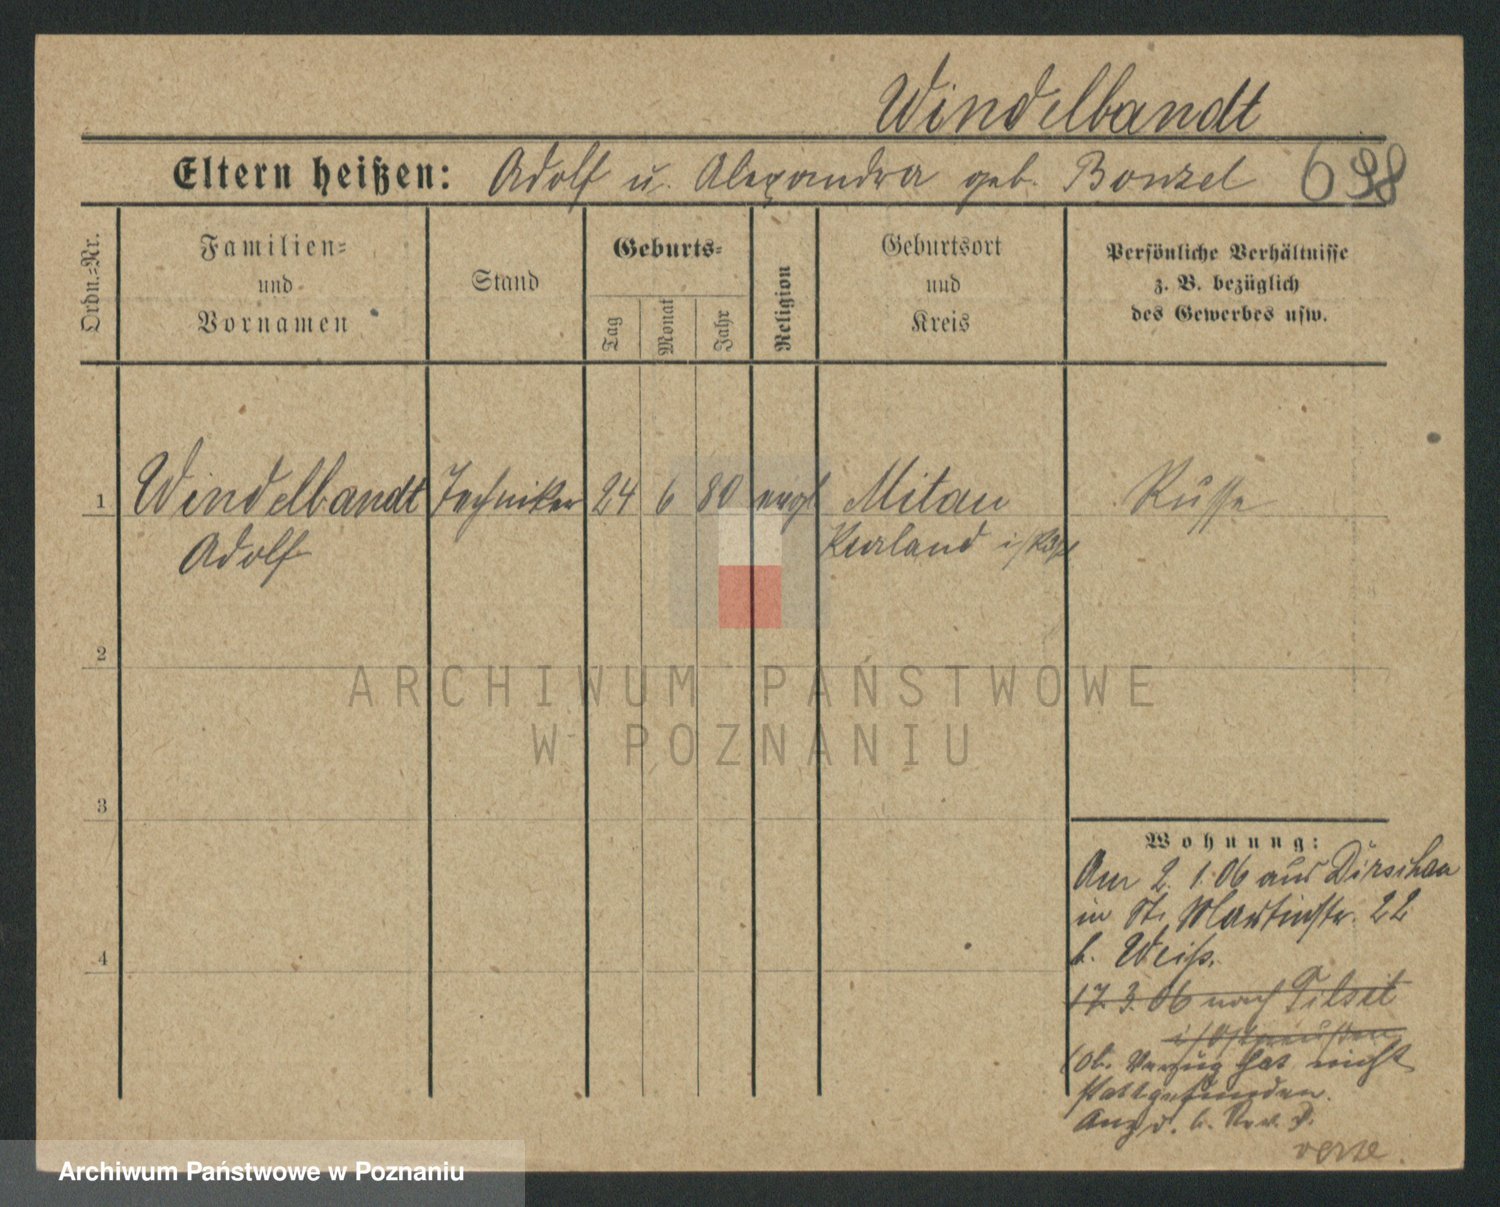 Windelbandt
Eltern heißen: Adolf u. Alexandra geb. Bonzel 698
Ordn.=Nr.
Familien=
und
Vornamen
Stand
Geburts=
Tag
Monat
Jahr
Religion
Geburtsort
und
Kreis
Persönliche Verhältnisse
z. B. bezüglich
des Gewerbes usw.
1 Windelbandt Techniker 24 6 80 evgl Mitau Russe
Adolf Kurland
2
3
4
Wohnung:
Am 2. 1. 06 aus Dirschau
in St. Martinstr. 22
b. Weiß.
17. 3. 06 nach Tilsit
i/Ostpreußen
(Ob. Verzug hat nicht
stattgefunden.
ARCHIWUM PAŃSTWOWE
W POZNANIU
Archiwum Państwowe w Poznaniu